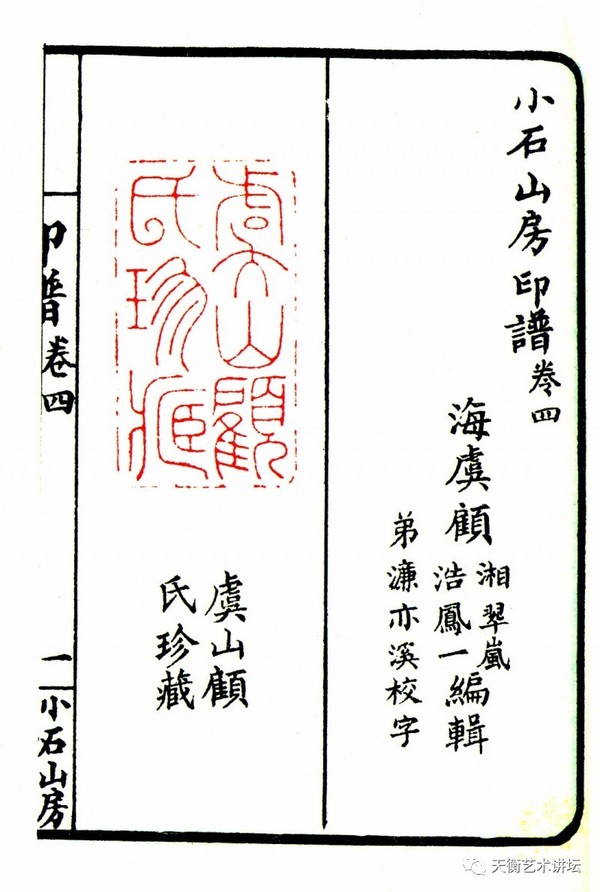 小石山房印譜卷四
海虞顧
湘翠嵐
浩鳳一
編輯
弟濂亦溪校字
虞山顧
氏珍藏
虞山顧
氏珍藏
印譜卷四
一
小石山房
天衡艺术讲坛